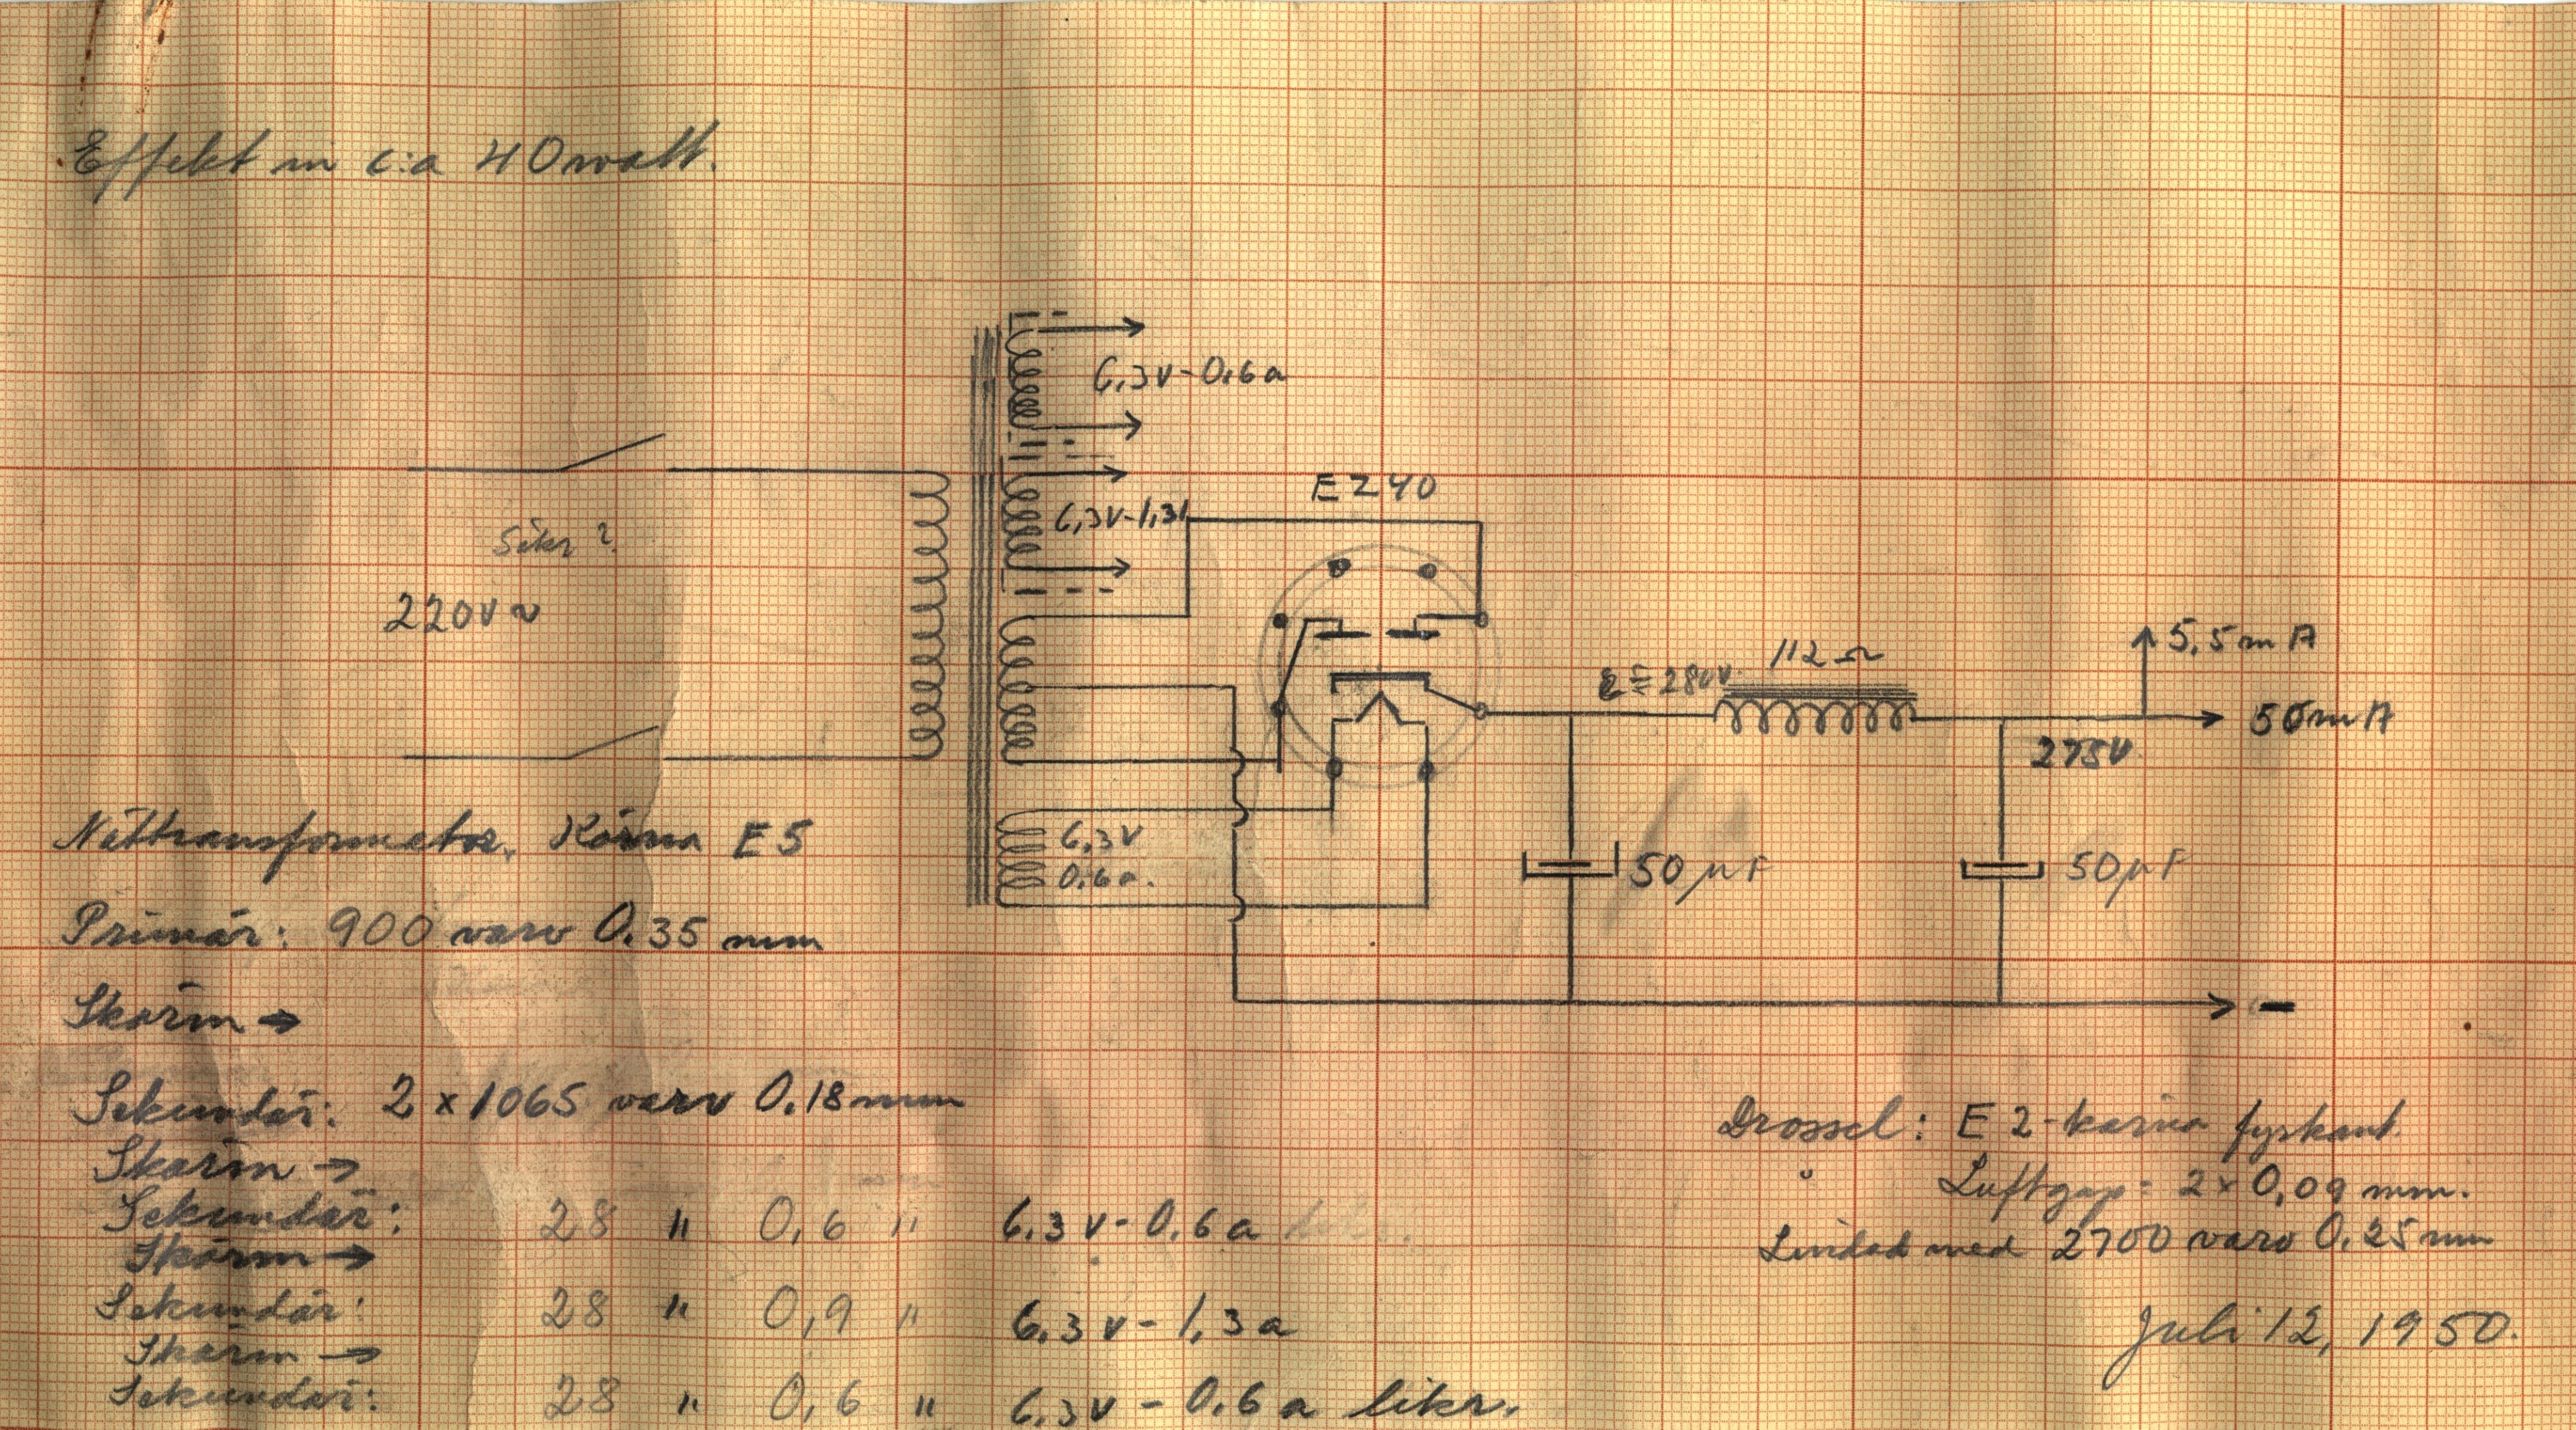 Effekt in c:a 40 watt.
6,3V-0,6a
6,3V-1,3
EZ40
Säkr?
220V~
112Ω
= 280V.
5,5mA
50mA
275V
6,3V
0,6a.
50µF
50µF
-
Nättransformator. Kärna E5
Primär: 900 varv 0,35 mm
Skärm →
Sekundär: 2 x 1065 varv 0.18mm
Skärm →
Sekundär: 28 " 0,6 " 6.3 v - 0.6 a
Skärm →
Sekundär: 28 " 0,9 " 6.3 v - 1,3 a
Skärm →
Sekundär: 28 " 0,6 " 6.3v - 0.6 a likr.
Drossel: E2-kärna fyrkant.
" Luftgap = 2 x 0,09 mm.
Lindad med 2700 varv 0.25mm
Juli 12, 1950.